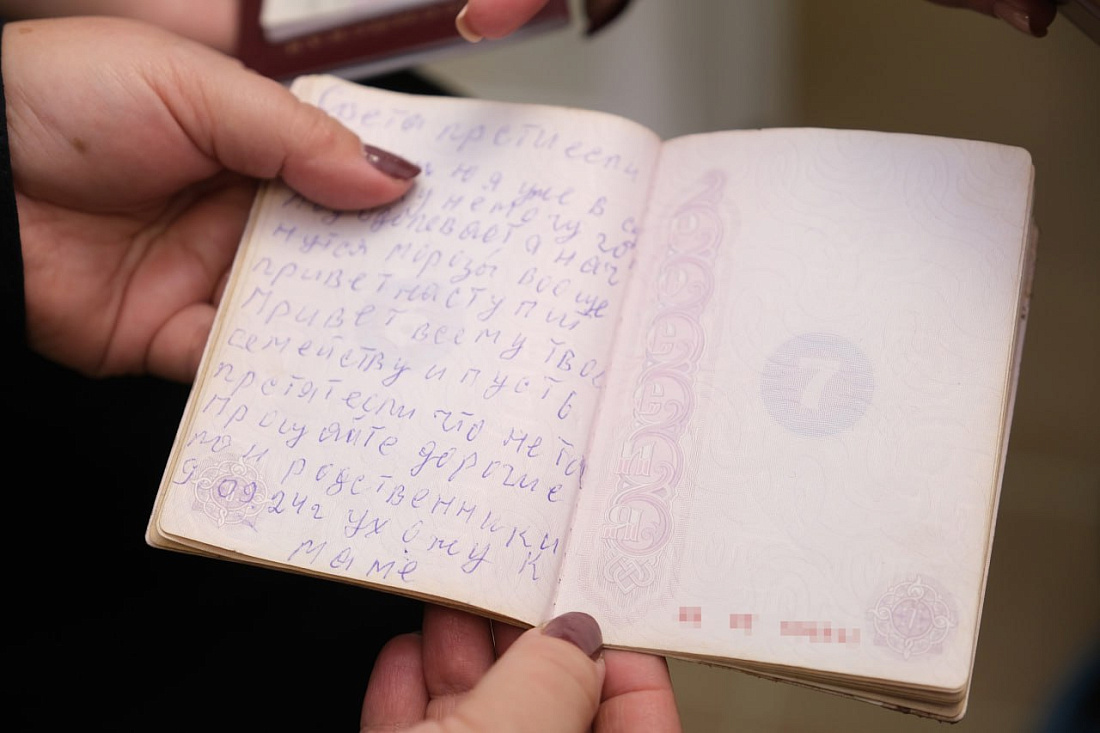 Света прсти если
ю я уже в
немогу
одолевает а нач
нутся морозы вообще
привет наступит
Привет всему твое
семейству и пусть
прстят если что не та
Прощайте дорогие
мо и родственники
9 09.24г ухожу к
маме
7